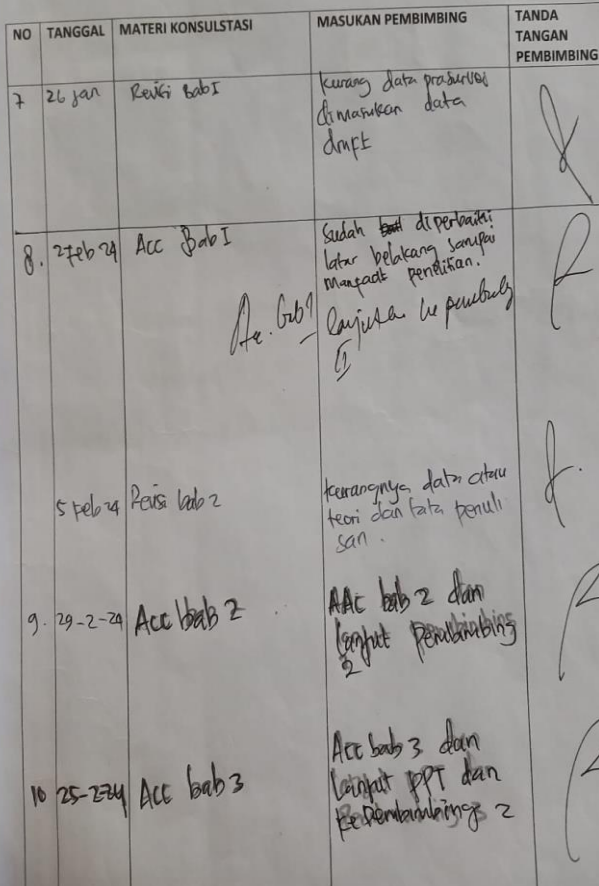 NO TANGGAL MATERI KONSULSTASI MASUKAN PEMBIMBING TANDA
TANGAN
PEMBIMBING
7 26 jan Revisi Bab I kurang data prasurvei
dimasukan data
draft
8. 2 Feb 24 Acc Bab I Sudah diperbaiki
latar belakang sampai
manfaat penelitian.
Acc. Bab 1 lanjutkan ke pembimbing
II
5 Feb 24 Revisi bab 2 kurangnya data atau
teori dan tata penuli
san.
9. 29-2-24 Acc bab 2 AAc bab 2 dan
lanjut Pembimbing
2
10 25-2-24 Acc bab 3 Acc bab 3 dan
lanjut PPT dan
ke Pembimbing 2